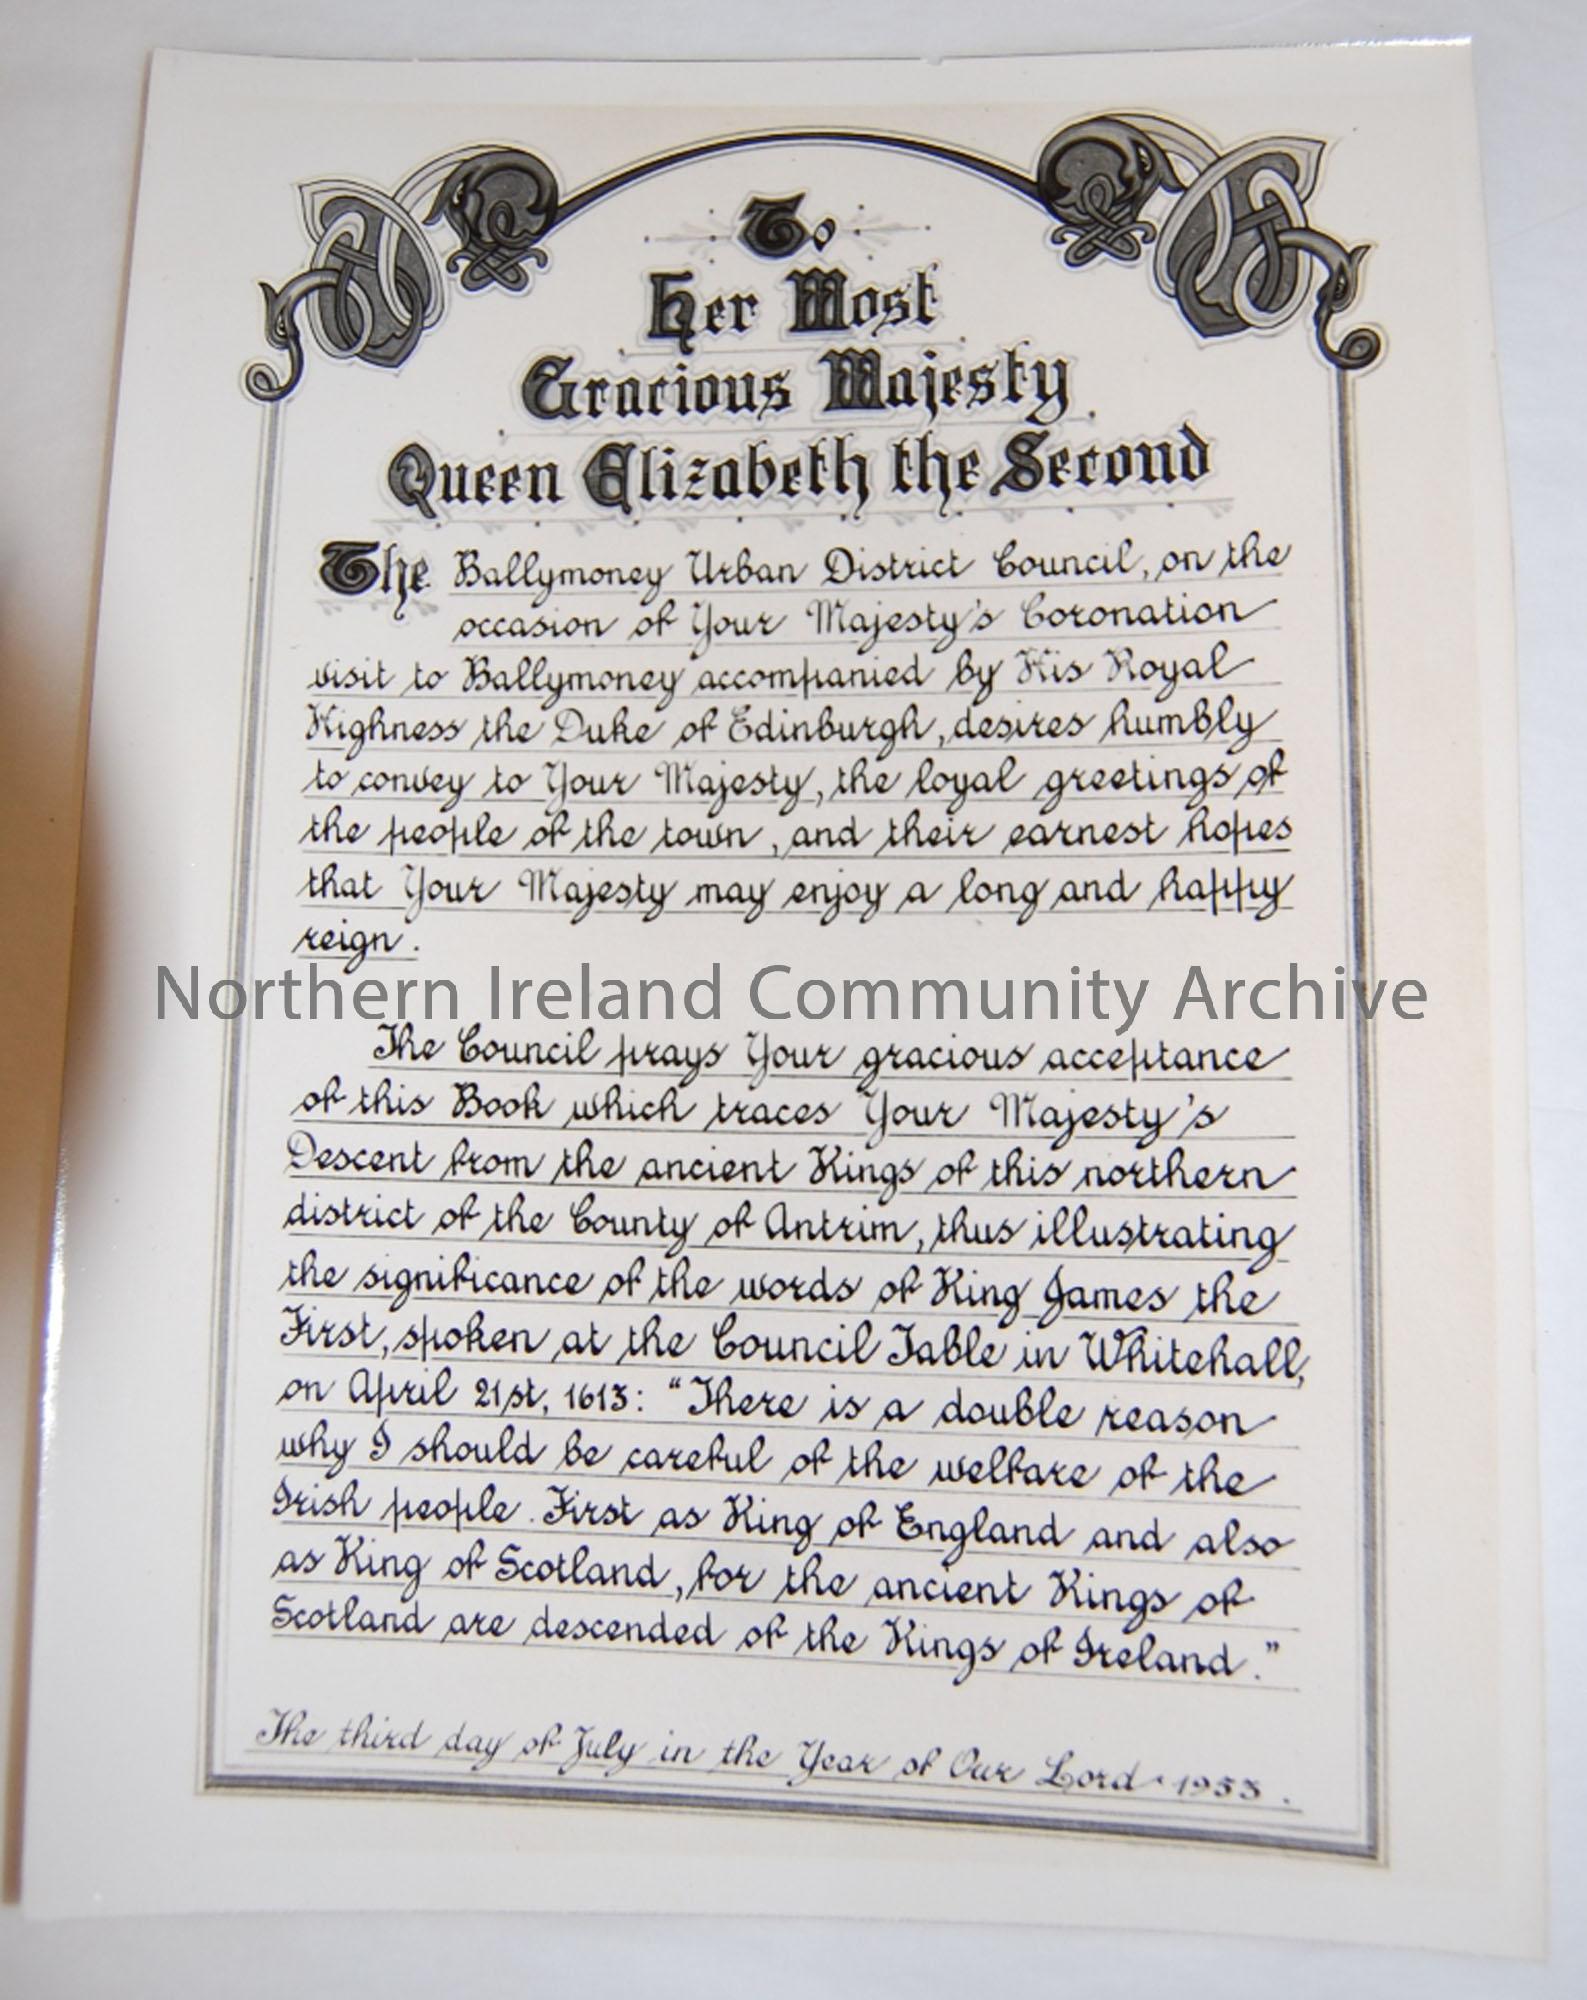 To
Her Most
Gracious Majesty
Queen Elizabeth the Second
The Ballymoney Urban District Council, on the
occasion of Your Majesty's Coronation
visit to Ballymoney accompanied by His Royal
Highness the Duke of Edinburgh, desires humbly
to convey to Your Majesty, the loyal greetings of
the people of the town, and their earnest hopes
that Your Majesty may enjoy a long and happy
reign.
Northern Ireland Community Archive
The Council prays Your gracious acceptance
of this Book which traces Your Majesty's
Descent from the ancient Kings of this northern
district of the County of Antrim, thus illustrating
the significance of the words of King James the
First, spoken at the Council Table in Whitehall,
on April 21st, 1613: "There is a double reason
why I should be careful of the welfare of the
Irish people. First as King of England and also
as King of Scotland, for the ancient Kings of
Scotland are descended of the Kings of Ireland."
The third day of July in the Year of Our Lord 1953.